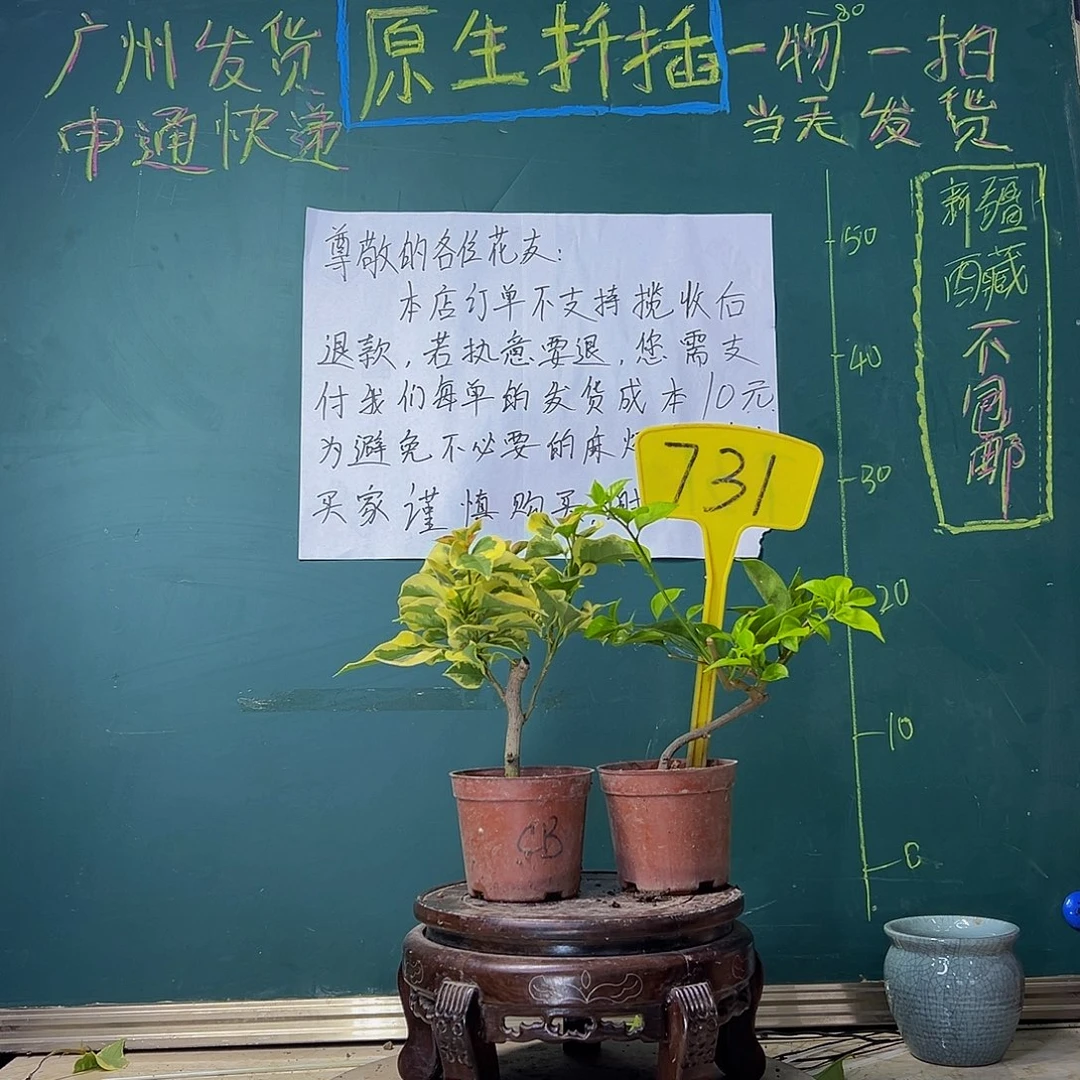 广州发货
申通快递
原生扦插
一物一拍
当天发货
80
新疆
西藏
不包邮
尊敬的各位花友:
本店订单不支持揽收后
退款,若执意要退,您需支
付我们每单的发货成本10元
为避免不必要的麻烦
买家谨慎购买,谢
731
50
40
30
20
10
0
CB